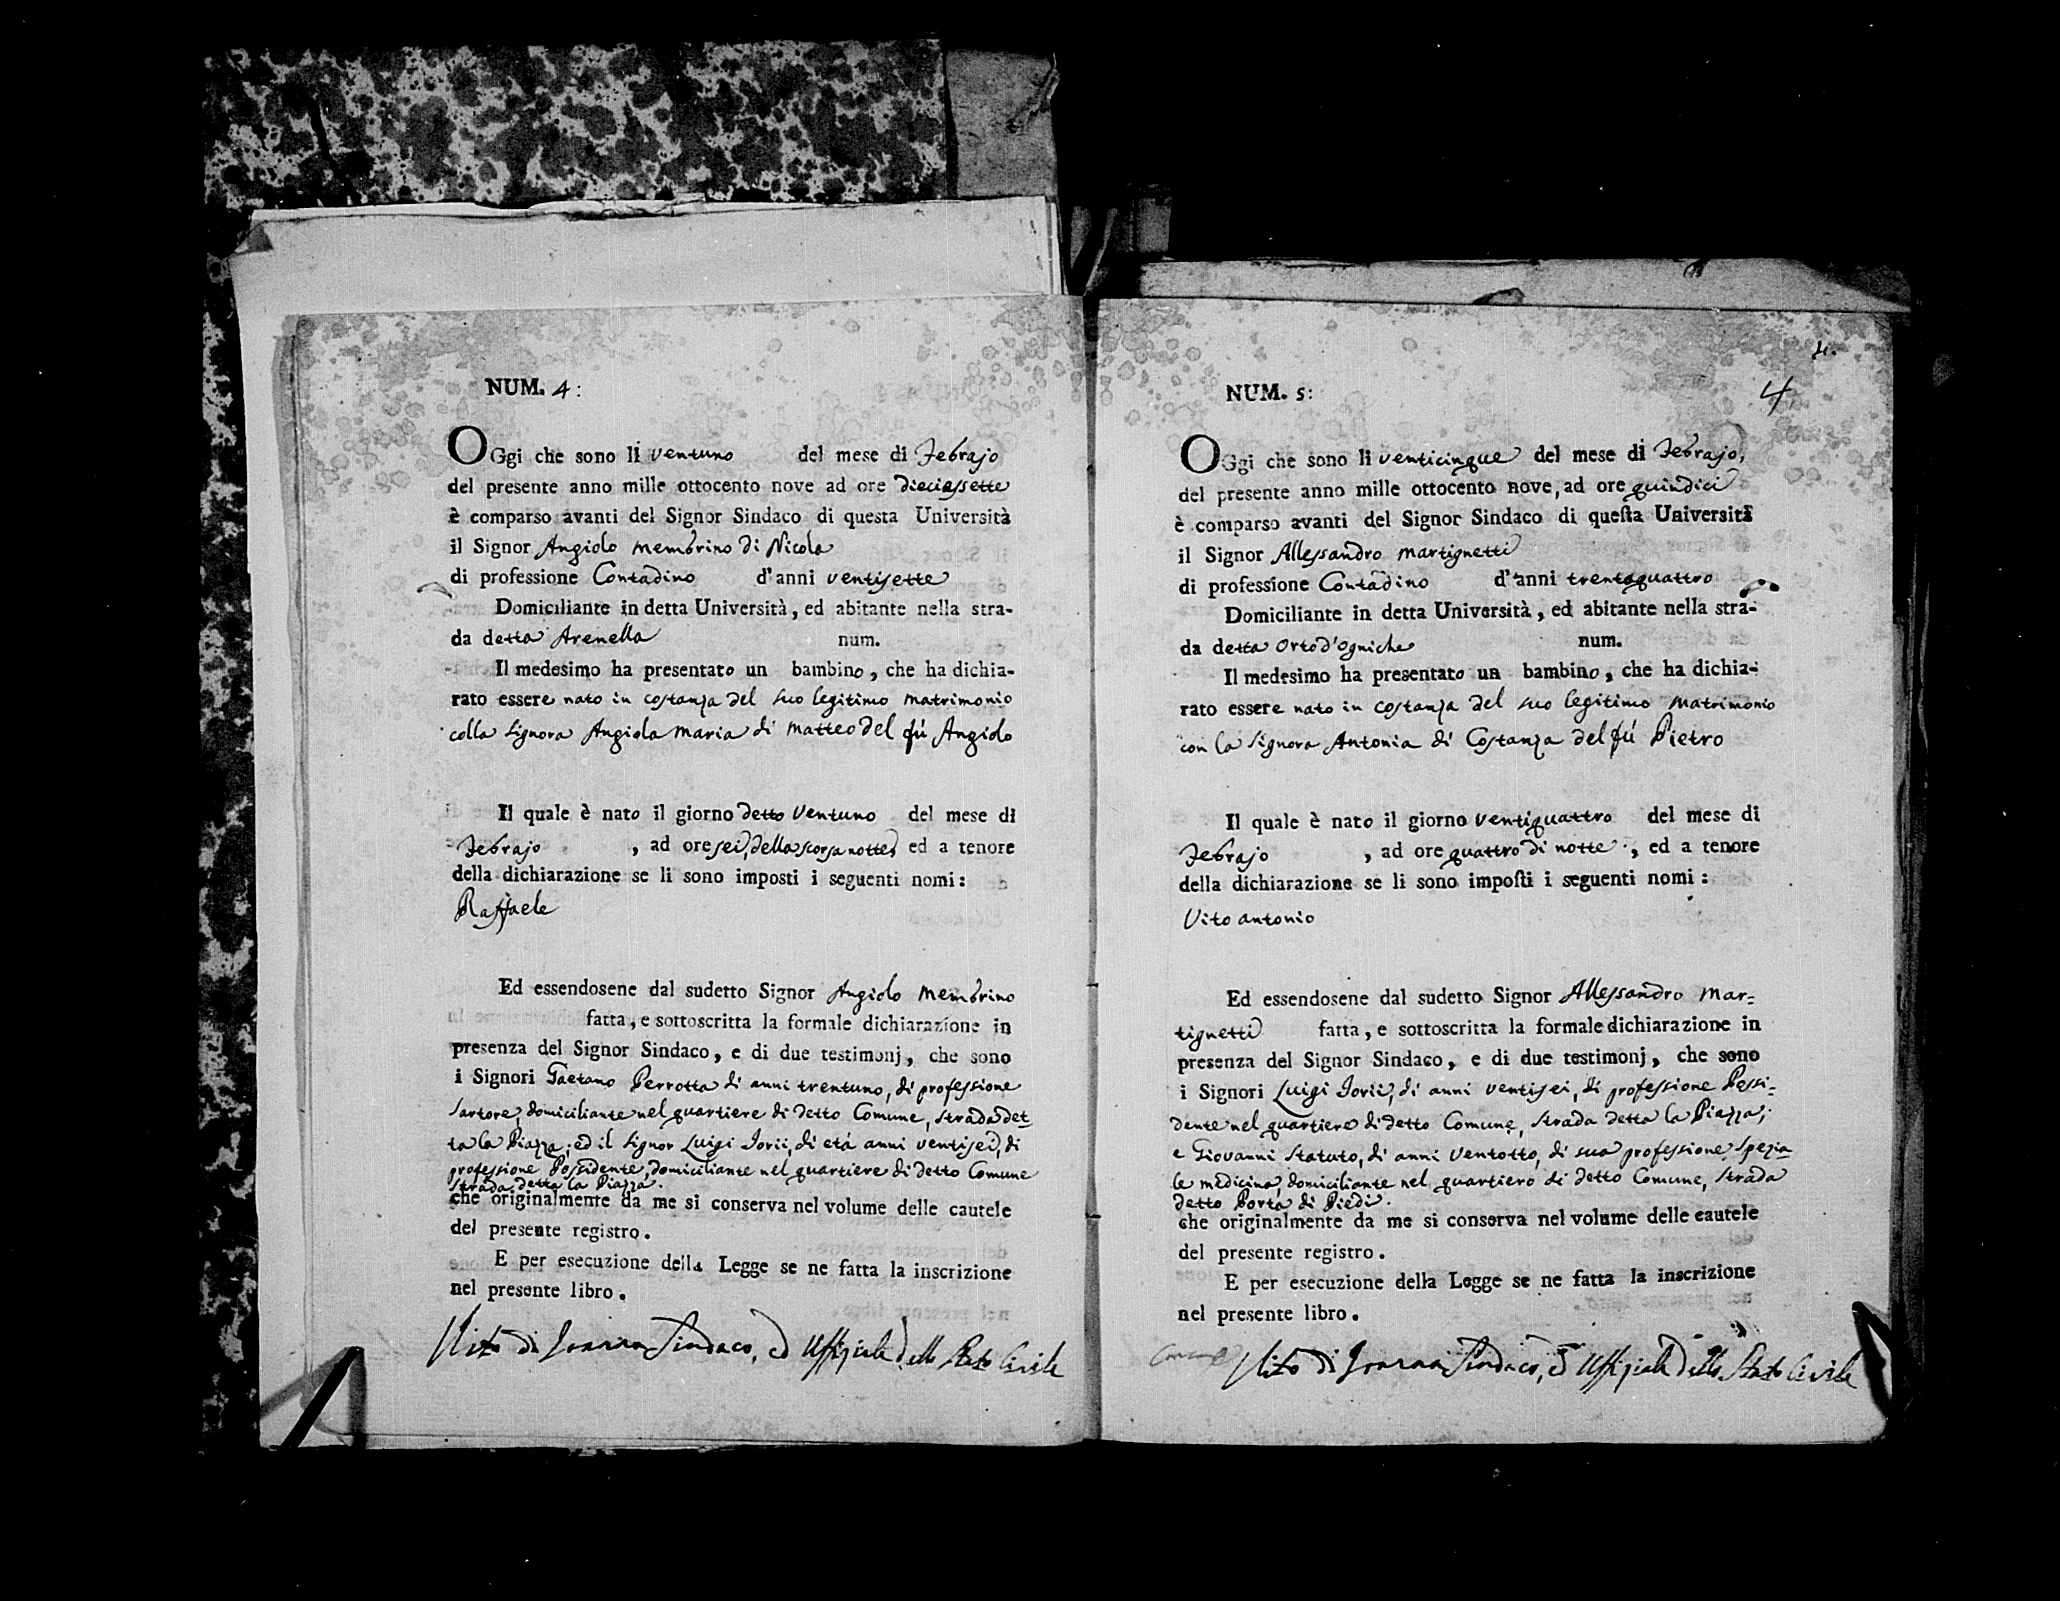 NUM. 4:
OGgi che sono li ventuno del mese di Febrajo
del presente anno mille ottocento nove ad ore dieciassette
è comparso avanti del Signor Sindaco di questa Università
il Signor Angiolo Membrino di Nicola
di professione Contadino d'anni ventisette
Domiciliante in detta Università, ed abitante nella stra-
da detta Arenella num.
Il medesimo ha presentato un bambino, che ha dichia-
rato essere nato in costanza del suo legitimo matrimonio
colla Signora Angiola Maria di Matteo del fù Angiolo
Il quale è nato il giorno detto ventuno del mese di
Febrajo, ad ore sei, della scorsa notte, ed a tenore
della dichiarazione se li sono imposti i seguenti nomi:
Raffaele
Ed essendosene dal sudetto Signor Angiolo Membrino
fatta, e sottoscritta la formale dichiarazione in
presenza del Signor Sindaco, e di due testimonj, che sono
i Signori Gaetano Perrotta di anni trentuno, di professione
Sartore, domiciliante nel quartiere di detto Comune, strada det-
ta la Piazza; ed il Signor Luigi Iorii, di età anni ventisei, di
professione Possidente, domiciliante nel quartiere di detto Comune
strada detta la Piazza.
che originalmente da me si conserva nel volume delle cautele
del presente registro.
E per esecuzione della Legge se ne fatta la inscrizione
nel presente libro.
Vito di Ioanna Sindaco, ed Uffiziale dello Stato Civile
4.
4
NUM. 5:
OGgi che sono li venticinque del mese di Febrajo,
del presente anno mille ottocento nove, ad ore quindici
è comparso avanti del Signor Sindaco di questa Università
il Signor Allessandro Martignetti
di professione Contadino d'anni trentaquattro
Domiciliante in detta Università, ed abitante nella stra-
da detta Orto d'Ogniche num.
Il medesimo ha presentato un bambino, che ha dichia-
rato essere nato in costanza del suo legitimo matrimonio
con la Signora Antonia di Costanza del fù Pietro
Il quale è nato il giorno ventiquattro del mese di
Febrajo, ad ore quattro di notte, ed a tenore
della dichiarazione se li sono imposti i seguenti nomi:
Vito antonio
Ed essendosene dal sudetto Signor Allessandro Mar=
tignetti fatta, e sottoscritta la formale dichiarazione in
presenza del Signor Sindaco, e di due testimonj, che sono
i Signori Luigi Iorii, di anni ventisei, di professione Possi=
dente nel quartiere di detto Comune, strada detta la Piazza;
e Giovanni Statuto, di anni ventotto, di sua professione Spezia=
le medicina, domiciliante nel quartiero di detto Comune, strada
detto Porta di Piedi.
che originalmente da me si conserva nel volume delle cautele
del presente registro.
E per esecuzione della Legge se ne fatta la inscrizione
nel presente libro.
Vito di Ioanna Sindaco, ed Uffiziale dello Stato Civile